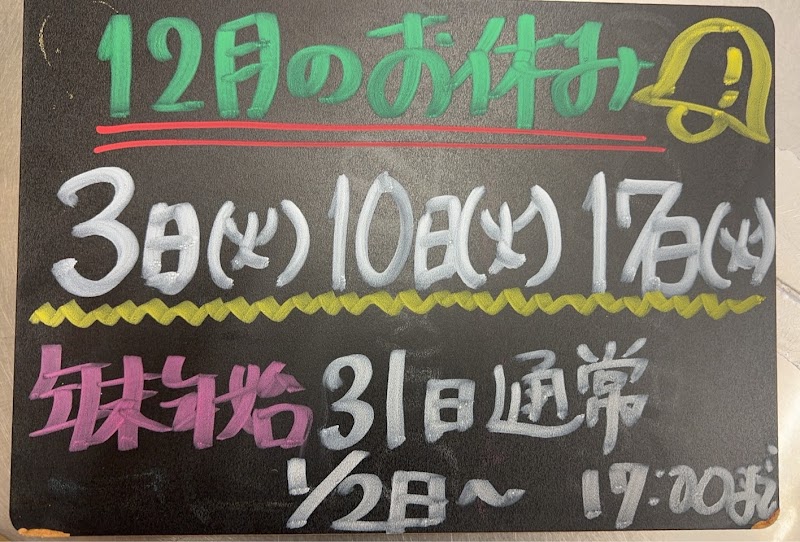 12月のお休み
3日(火)10日(火)17日(火)
年末年始 31日通常
1/2日〜 17:00まで